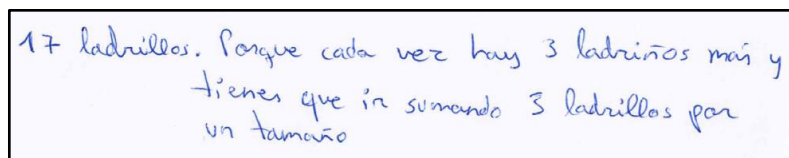 17 ladrillos. Porque cada vez hay 3 ladriños más y
tienes que ir sumando 3 ladrillos por
un tamaño